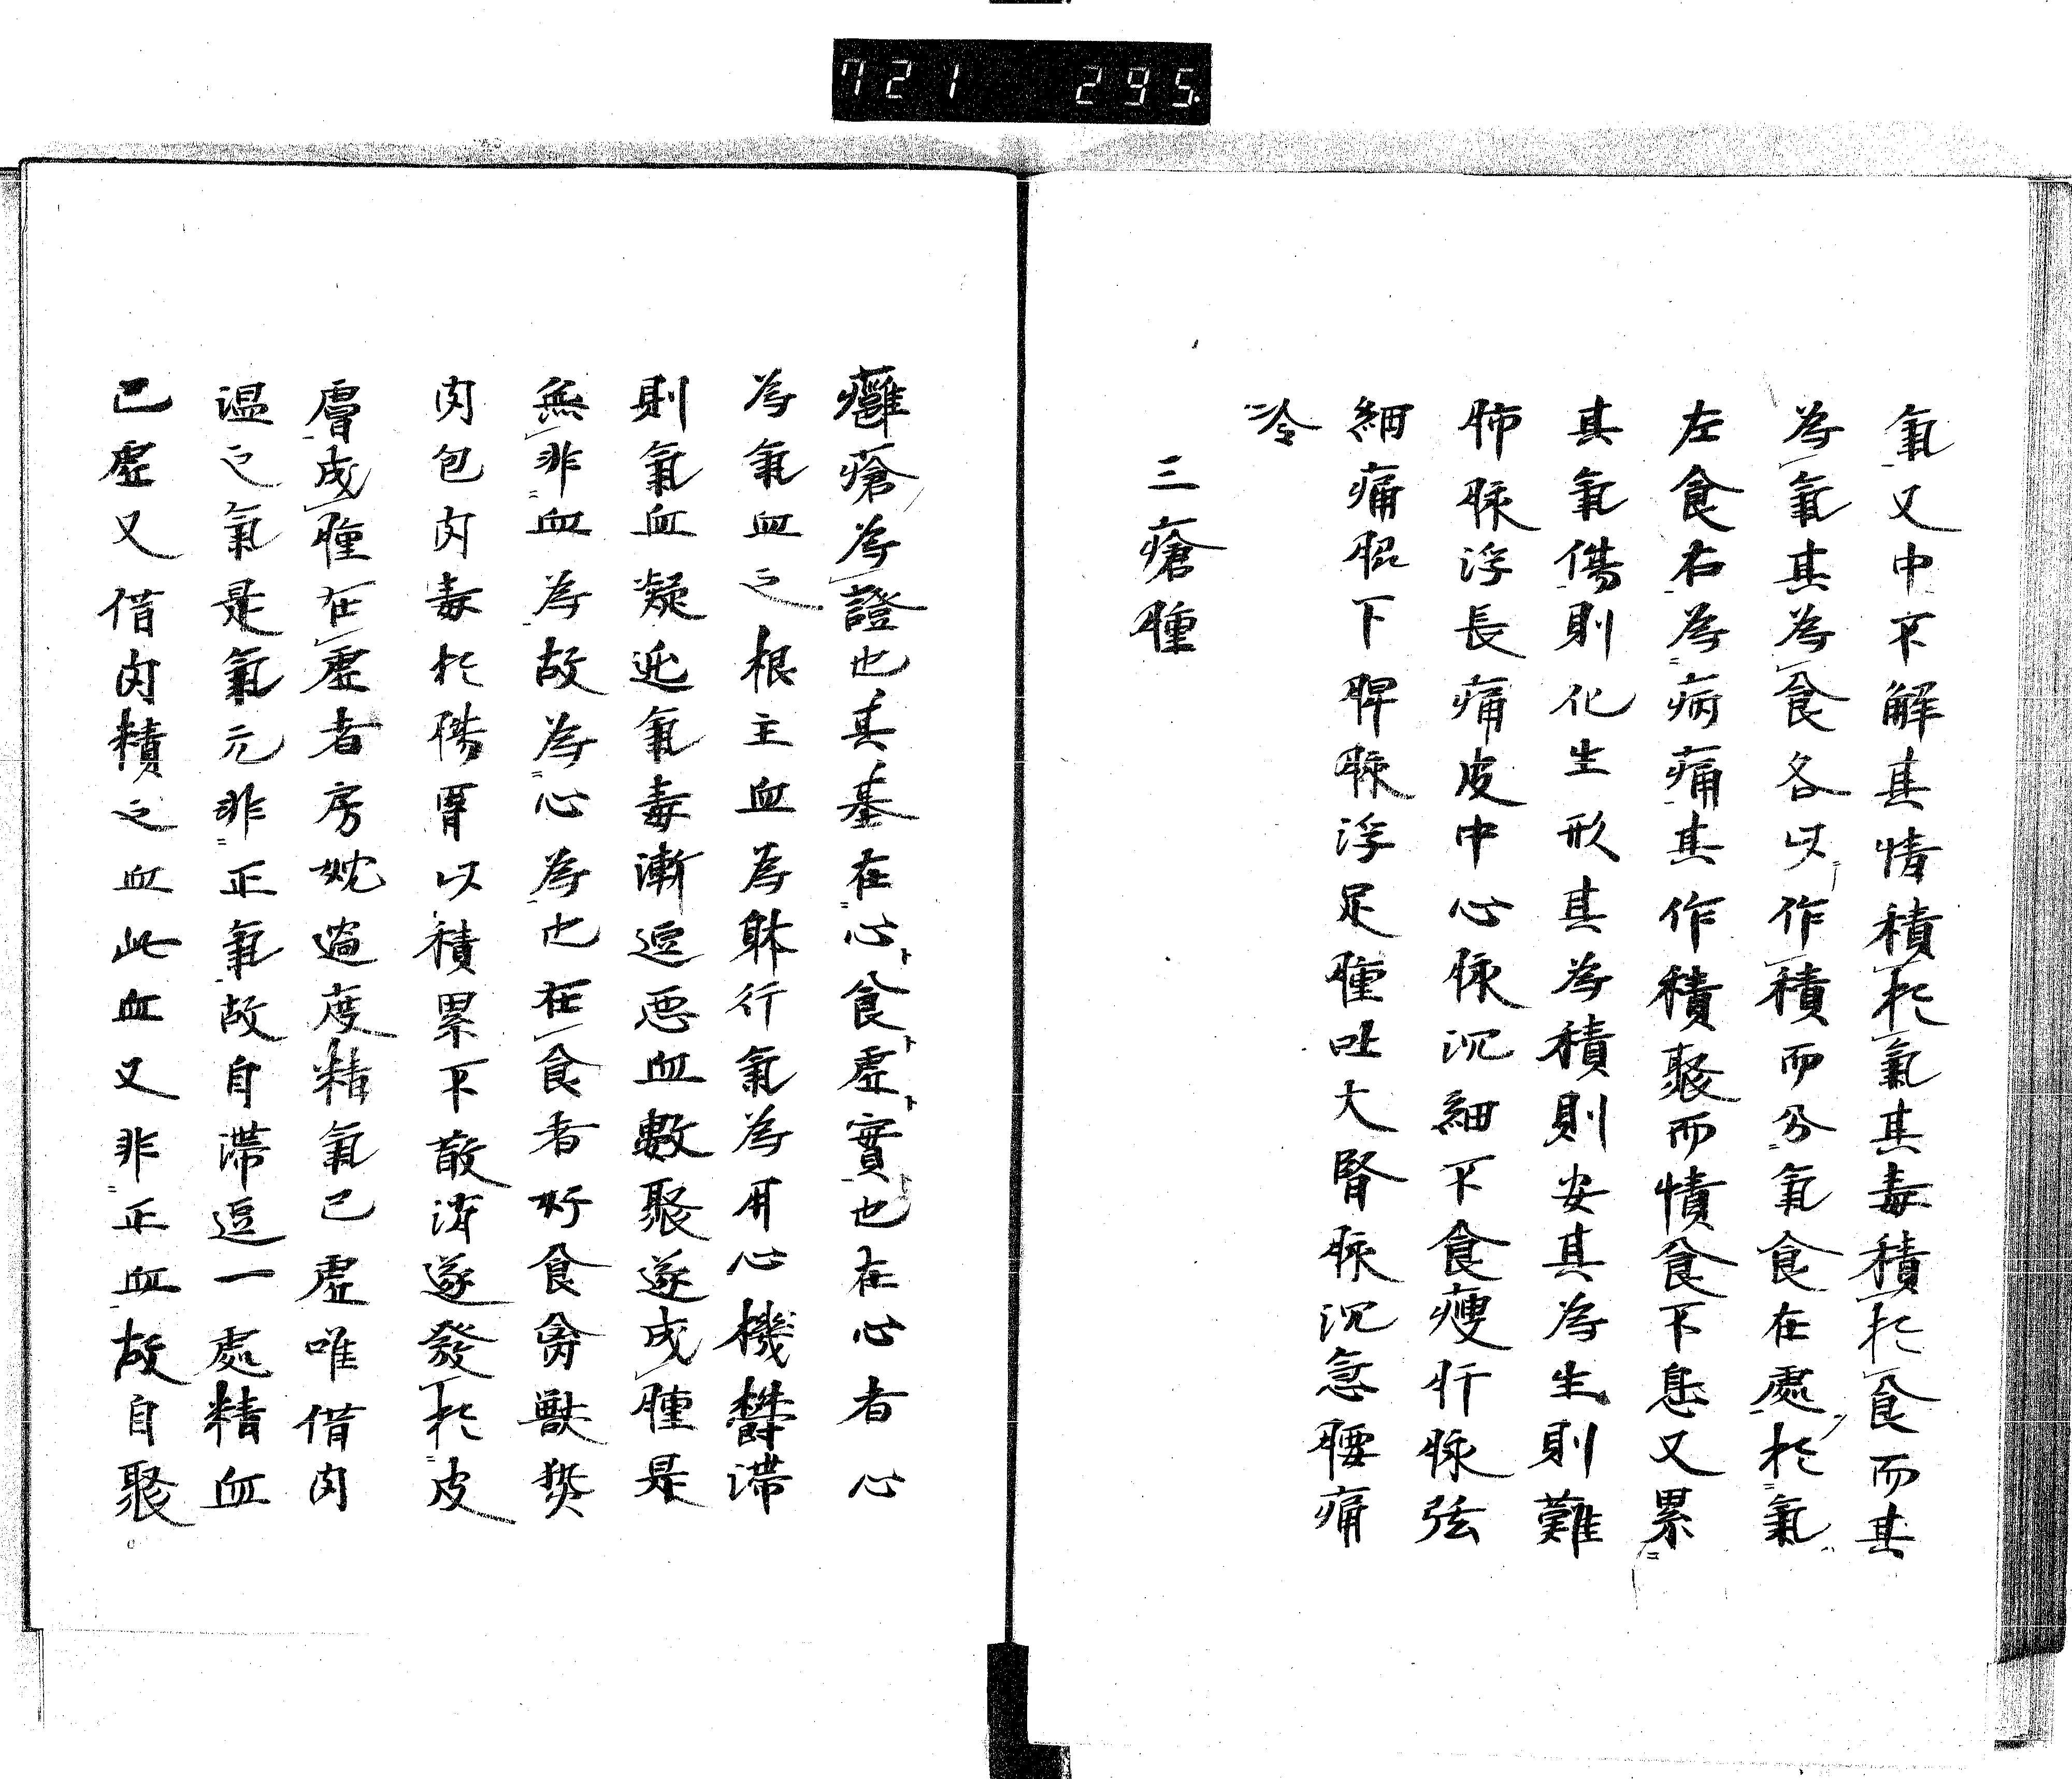 721 295
氣又中不解其情積於氣其毒積於食而其
為氣其為食各以作積而分氣食在處於氣
左食右為病痛其作積聚而憤食不息又累
其氣傷則化生形其為積則安其為生則難
肺脉浮長痛皮中心脉沉細不食瘦肝脉弦
細痛肥下脾脉浮足腫吐大腎脉沉急腰痛
冷
三瘡腫
癰瘡為證也其基在心食虛實也在心者心
為氣血之根主血為躰行氣為用心機欝滯
則氣血凝逆氣毒漸逗悪血數聚遂成腫是
無非血為故為心為也在食者好食禽獸
肉包肉毒於腸胃以積累不散済遂發於皮
膚成腫在虛者房妣過度精氣已虛唯借肉
温之氣是氣元非正氣故自滯逗一處精血
已虛又借肉積之血此血又非正血故自聚